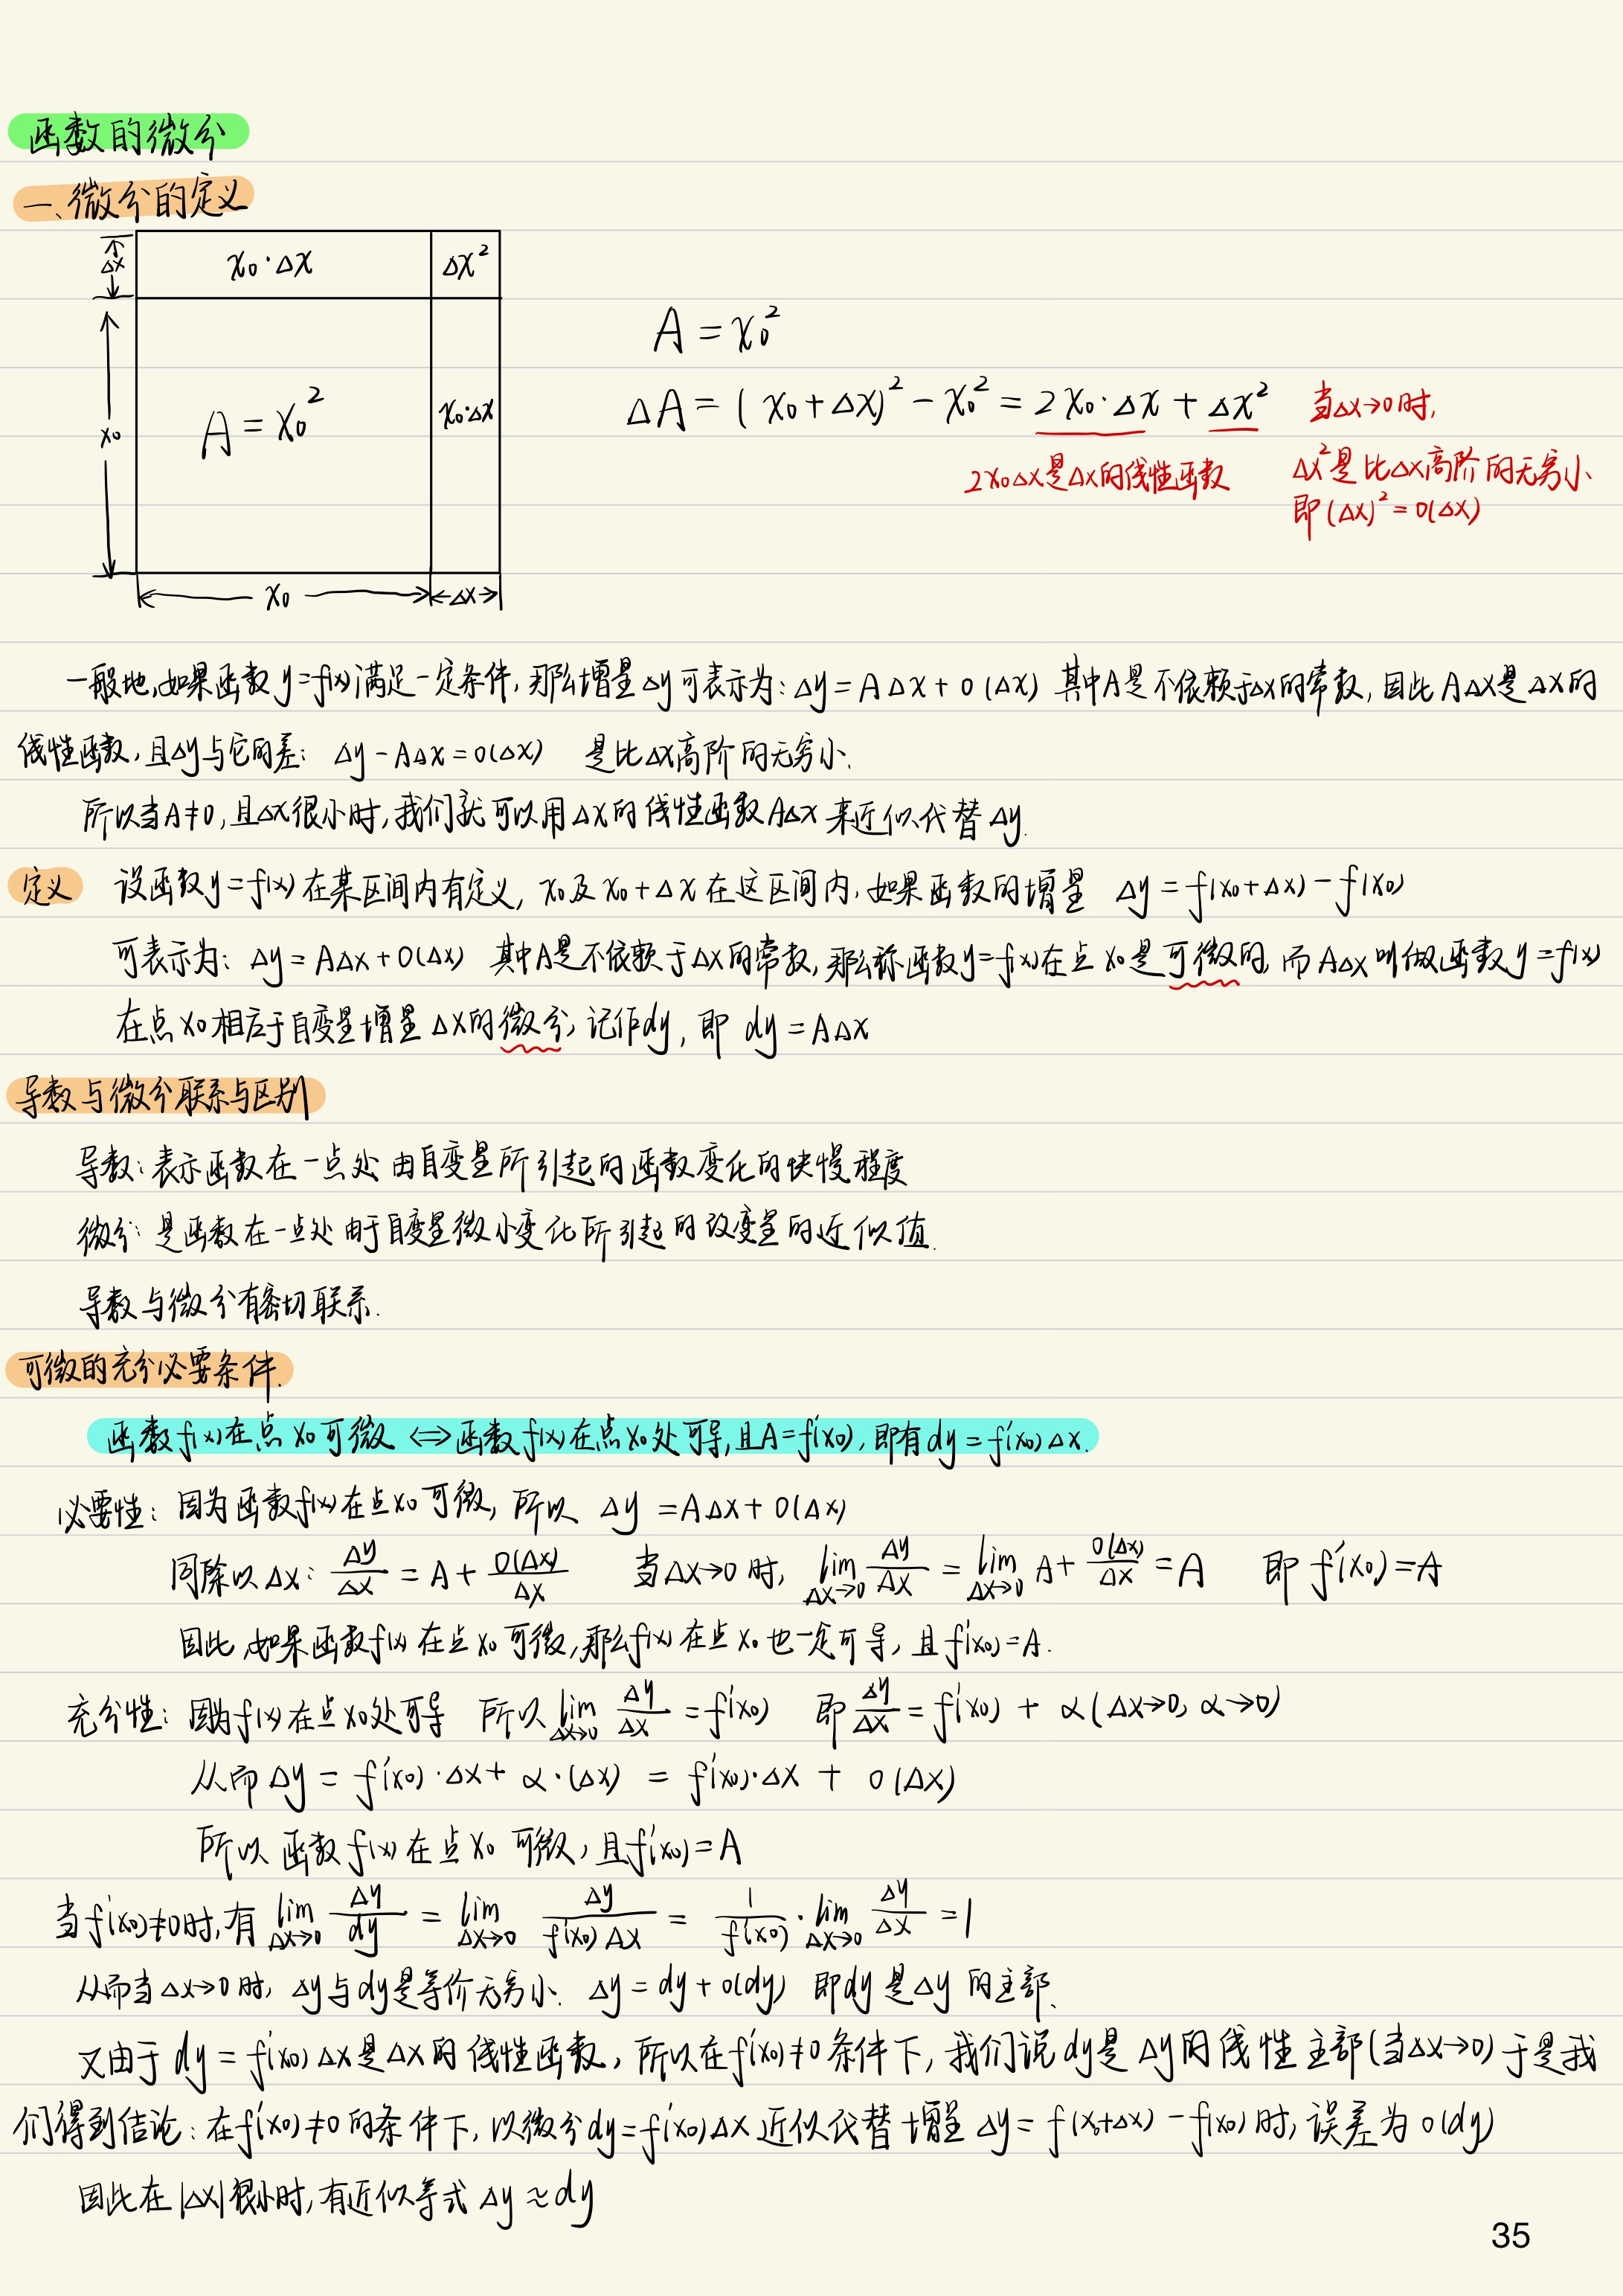 函数的微分
一、微分的定义
Δx
x₀·Δx
Δx²
x₀
A=x₀²
x₀·Δx
x₀
Δx
A=x₀²
ΔA=(x₀+Δx)²-x₀²=2x₀·Δx+Δx²
当Δx→0时,
2x₀Δx是Δx的线性函数
Δx²是比Δx高阶的无穷小
即(Δx)²=o(Δx)
一般地,如果函数y=f(x)满足一定条件,那么增量Δy可表示为:Δy=AΔx+o(Δx) 其中A是不依赖于Δx的常数,因此AΔx是Δx的
线性函数,且Δy与它的差: Δy-AΔx=o(Δx) 是比Δx高阶的无穷小.
所以当A≠0,且Δx很小时,我们就可以用Δx的线性函数AΔx来近似代替Δy.
定义 设函数y=f(x)在某区间内有定义, x₀及x₀+Δx在这区间内,如果函数的增量 Δy=f(x₀+Δx)-f(x₀)
可表示为: Δy=AΔx+o(Δx) 其中A是不依赖于Δx的常数,那么称函数y=f(x)在点x₀是可微的,而AΔx叫做函数y=f(x)
在点x₀相应于自变量增量Δx的微分,记作dy, 即 dy=AΔx
导数与微分联系与区别
导数:表示函数在一点处由自变量所引起的函数变化的快慢程度
微分:是函数在一点处由于自变量微小变化所引起的改变量的近似值.
导数与微分有密切联系.
可微的充分必要条件.
函数f(x)在点x₀可微⇔函数f(x)在点x₀处可导,且A=f'(x₀),即有dy=f'(x₀)Δx.
必要性: 因为函数f(x)在点x₀可微, 所以 Δy=AΔx+o(Δx)
同除以Δx: Δy/Δx=A+o(Δx)/Δx 当Δx→0时, lim Δx→0 Δy/Δx=lim Δx→0 A+o(Δx)/Δx=A 即f'(x₀)=A
因此,如果函数f(x)在点x₀可微,那么f(x)在点x₀也一定可导,且f'(x₀)=A.
充分性: 因为f(x)在点x₀处可导 所以lim Δx→0 Δy/Δx=f'(x₀) 即Δy/Δx=f'(x₀)+α(Δx→0, α→0)
从而Δy=f'(x₀)·Δx+α·(Δx)=f'(x₀)·Δx+o(Δx)
所以 函数f(x)在点x₀可微,且f'(x₀)=A
当f'(x₀)≠0时,有lim Δx→0 Δy/dy=lim Δx→0 Δy/f'(x₀)Δx=1/f'(x₀)·lim Δx→0 Δy/Δx=1
从而当Δx→0时, Δy与dy是等价无穷小. Δy=dy+o(dy) 即dy是Δy的主部.
又由于dy=f'(x₀)Δx是Δx的线性函数,所以在f'(x₀)≠0条件下,我们说dy是Δy的线性主部(当Δx→0)于是我
们得到结论:在f'(x₀)≠0的条件下,以微分dy=f'(x₀)Δx近似代替增量Δy=f(x₀+Δx)-f(x₀)时,误差为o(dy)
因此在|Δx|很小时,有近似等式Δy≈dy
35